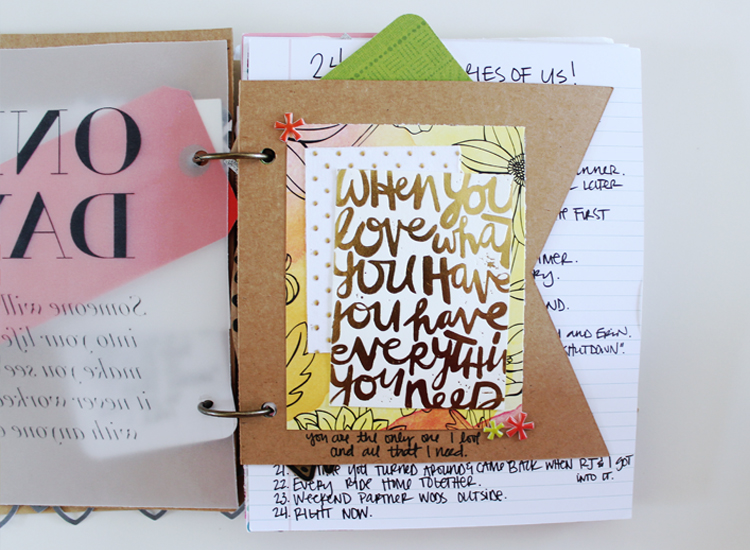 ON
DAY
Someone will
into your life
make you see
it never worked
with anyone
24
RIES OF US!
LATER
FIRST
AND ERIN.
SHUTDOWN".
WHEN YOU
love what
you Have
you have
everythi
you need
you are the only one I love
and all that I need.
21. TIME YOU TURNED AROUND & CAME BACK WHEN RJ & I GOT
INTO IT.
22. EVERY RIDE HOME TOGETHER.
23. WEEKEND PARTNER WODS OUTSIDE.
24. RIGHT NOW.